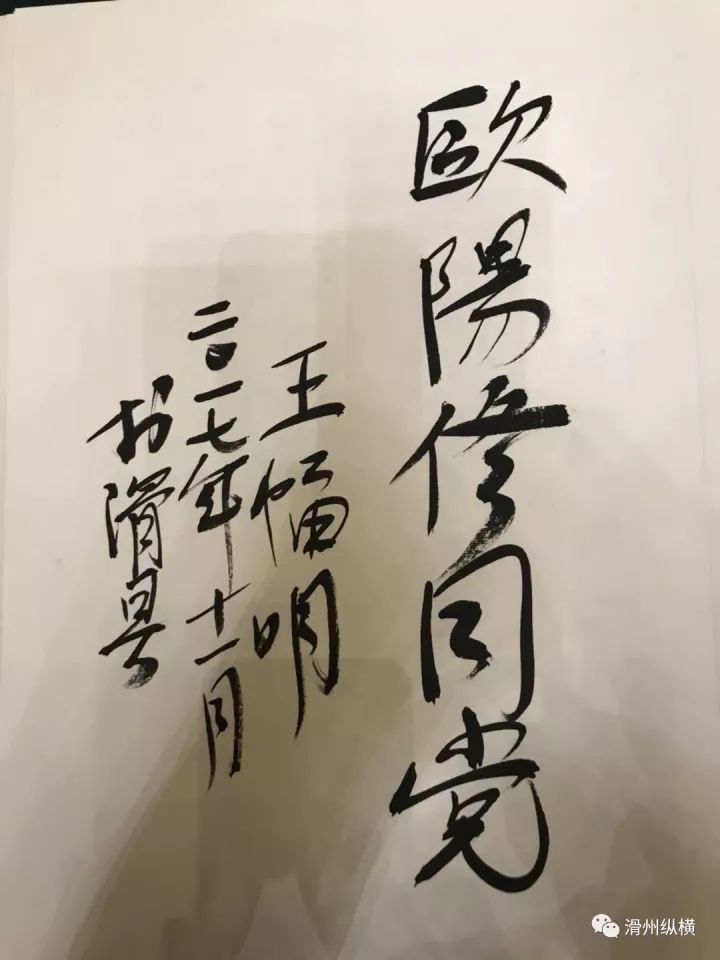 歐陽修同党
王幅明
二〇一七年十一月
於滑县
滑州纵横